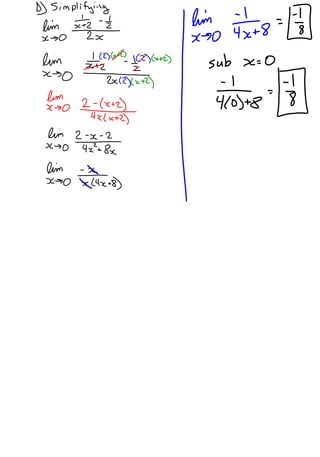 D) Simplifying
lim x→0 (1/(x+2) - 1/2)/(2x)
lim x→0 (1(2)(x+2)/(x+2) - 1(2)(x+2)/2)/(2x(2)(x+2))
lim x→0 (2-(x+2))/(4x(x+2))
lim x→0 (2-x-2)/(4x²+8x)
lim x→0 (-x)/(x(4x+8))
lim x→0 (-1)/(4x+8) = -1/8
sub x=0
(-1)/(4(0)+8) = -1/8